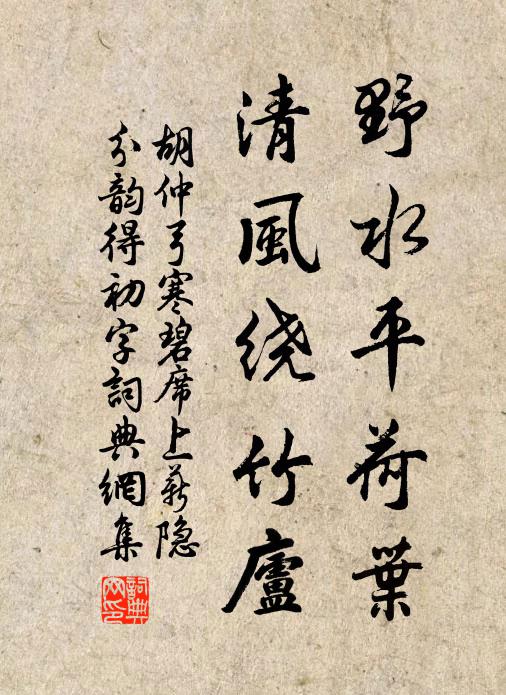 野水平荷葉
清風绕竹廬
胡仲弓寒碧席上薪隐
分韵得初字詞典網集
詞典网印